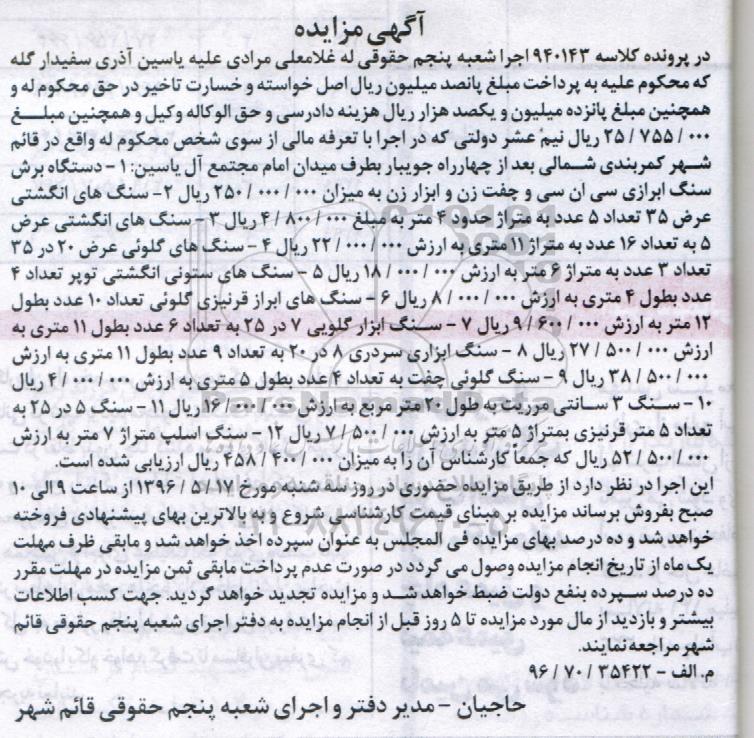 آگهی مزایده
در پرونده کلاسه ۹۴۰۱۴۳ اجرا شعبه پنجم حقوقی له غلامعلی مرادی علیه یاسین آذری سفیدار گله
که محکوم علیه به پرداخت مبلغ پانصد میلیون ریال اصل خواسته و خسارت تاخیر در حق محکوم له و
همچنین مبلغ پانزده میلیون و یکصد هزار ریال هزینه دادرسی و حق الوکاله وکیل و همچنین مبلــغ
۲۵/۷۵۵/۰۰۰ ریال نیم عشر دولتی که در اجرا با تعرفه مالی از سوی شخص محکوم له واقع در قائم
شهر کمربندی شمالی بعد از چهارراه جویبار بطرف میدان امام مجتمع آل یاسین: ۱- دستگاه برش
سنگ ابرازی سی ان سی و چفت زن و ابزار زن به میزان ۲۵۰/۰۰۰/۰۰۰ ریال ۲- سنگ های انگشتی
عرض ۳۵ تعداد ۵ عدد به متراژ حدود ۴ متر به مبلغ ۴/۸۰۰/۰۰۰ ریال ۳- سنگ های انگشتی عرض
۵ به تعداد ۱۶ عدد به متراژ ۱۱ متری به ارزش ۲۲/۰۰۰/۰۰۰ ریال ۴- سنگ های گلوئی عرض ۲۰ در ۳۵
تعداد ۳ عدد به متراژ ۶ متر به ارزش ۱۸/۰۰۰/۰۰۰ ریال ۵- سنگ های ستونی انگشتی توپر تعداد ۴
عدد بطول ۴ متری به ارزش ۸/۰۰۰/۰۰۰ ریال ۶- سنگ های ابراز قرنیزی گلوئی تعداد ۱۰ عدد بطول
۱۲ متر به ارزش ۹/۶۰۰/۰۰۰ ریال ۷- سـنگ ابزار گلویی ۷ در ۲۵ به تعداد ۶ عدد بطول ۱۱ متری به
ارزش ۲۷/۵۰۰/۰۰۰ ریال ۸- سنگ ابزاری سردری ۸ در ۲۰ به تعداد ۹ عدد بطول ۱۱ متری به ارزش
۳۸/۵۰۰/۰۰۰ ریال ۹- سنگ گلوئی چفت به تعداد ۴ عدد بطول ۵ متری به ارزش ۴/۰۰۰/۰۰۰ ریال
۱۰- سـنگ ۳ سـانتی مرریت به طول ۲۰ متر مربع به ارزش ۱۶/۰۰۰/۰۰۰ ریال ۱۱- سـنگ ۵ در ۲۵ به
تعداد ۵ متر قرنیزی بمتراژ ۵ متر به ارزش ۷/۵۰۰/۰۰۰ ریال ۱۲- سنگ اسلپ متراژ ۷ متر به ارزش
۵۲/۵۰۰/۰۰۰ ریال که جمعاً کارشناس آن را به میزان ۴۵۸/۴۰۰/۰۰۰ ریال ارزیابی شده است.
این اجرا در نظر دارد از طریق مزایده حضوری در روز سه شنبه مورخ ۱۳۹۶/۵/۱۷ از ساعت ۹ الی ۱۰
صبح بفروش برساند مزایده بر مبنای قیمت کارشناسی شروع و به بالاترین بهای پیشنهادی فروخته
خواهد شد و ده درصد بهای مزایده فی المجلس به عنوان سپرده اخذ خواهد شد و مابقی ظرف مهلت
یک ماه از تاریخ انجام مزایده وصول می گردد در صورت عدم پرداخت مابقی ثمن مزایده در مهلت مقرر
ده درصد سـپرده بنفع دولت ضبط خواهد شـد و مزایده تجدید خواهد گردید. جهت کسب اطلاعات
بیشتر و بازدید از مال مورد مزایده تا ۵ روز قبل از انجام مزایده به دفتر اجرای شعبه پنجم حقوقی قائم
شهر مراجعه نمایند.
م. الف - ۹۶/۷۰/۳۵۴۲۲
حاجیان - مدیر دفتر و اجرای شعبه پنجم حقوقی قائم شهر
ParsNamadData